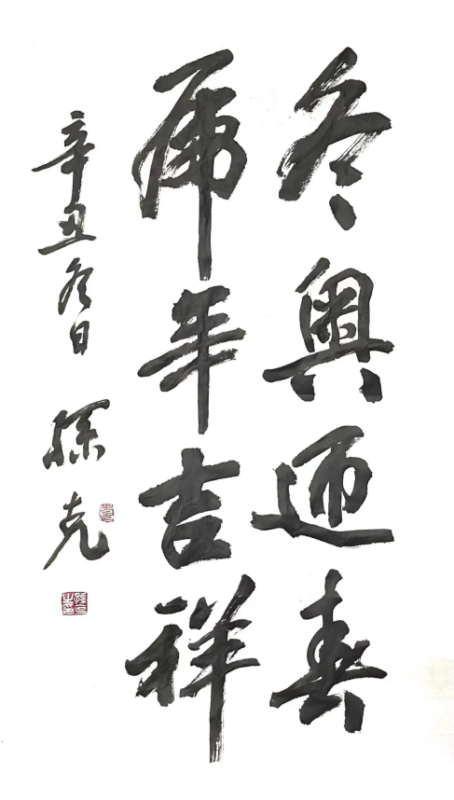 冬奥迎春
虎年吉祥
辛丑冬日
孫克